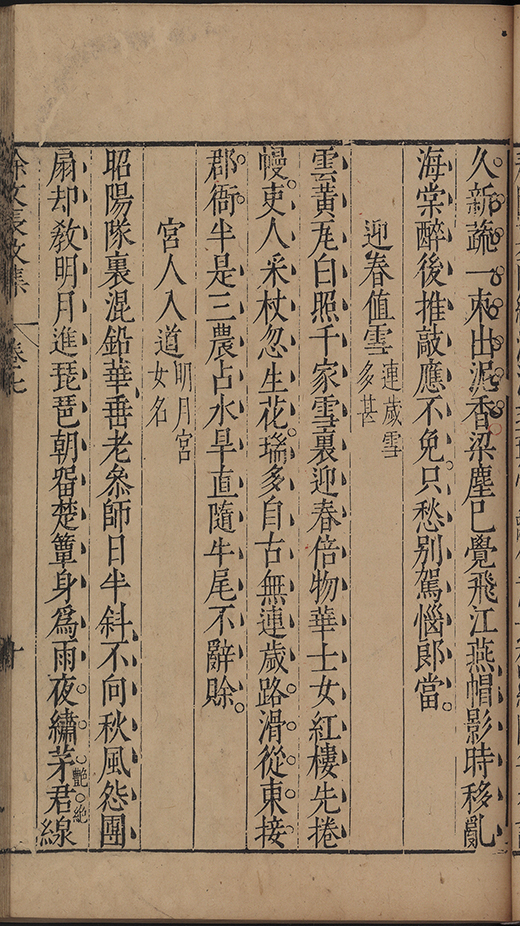 久新蔬一束出泥香梁塵已覺飛江燕帽影時移亂
海棠醉後推敲應不免只愁別駕惱郎當
迎春值雪連歲雪
多甚
雲黃瓦白照千家雪裏迎春倍物華士女紅樓先捲
幔吏人采杖忽生花瑞多自古無連歲路滑從東接
郡衙半是三農占水旱直隨牛尾不辭賒
宮人入道明月宮
女名
昭陽隊裏混鉛華垂老叅師日半斜不向秋風怨團
扇却敎明月進琵琶朝畱楚簟身爲雨夜繡茅君線
艷絕
徐文長文集 卷七 十